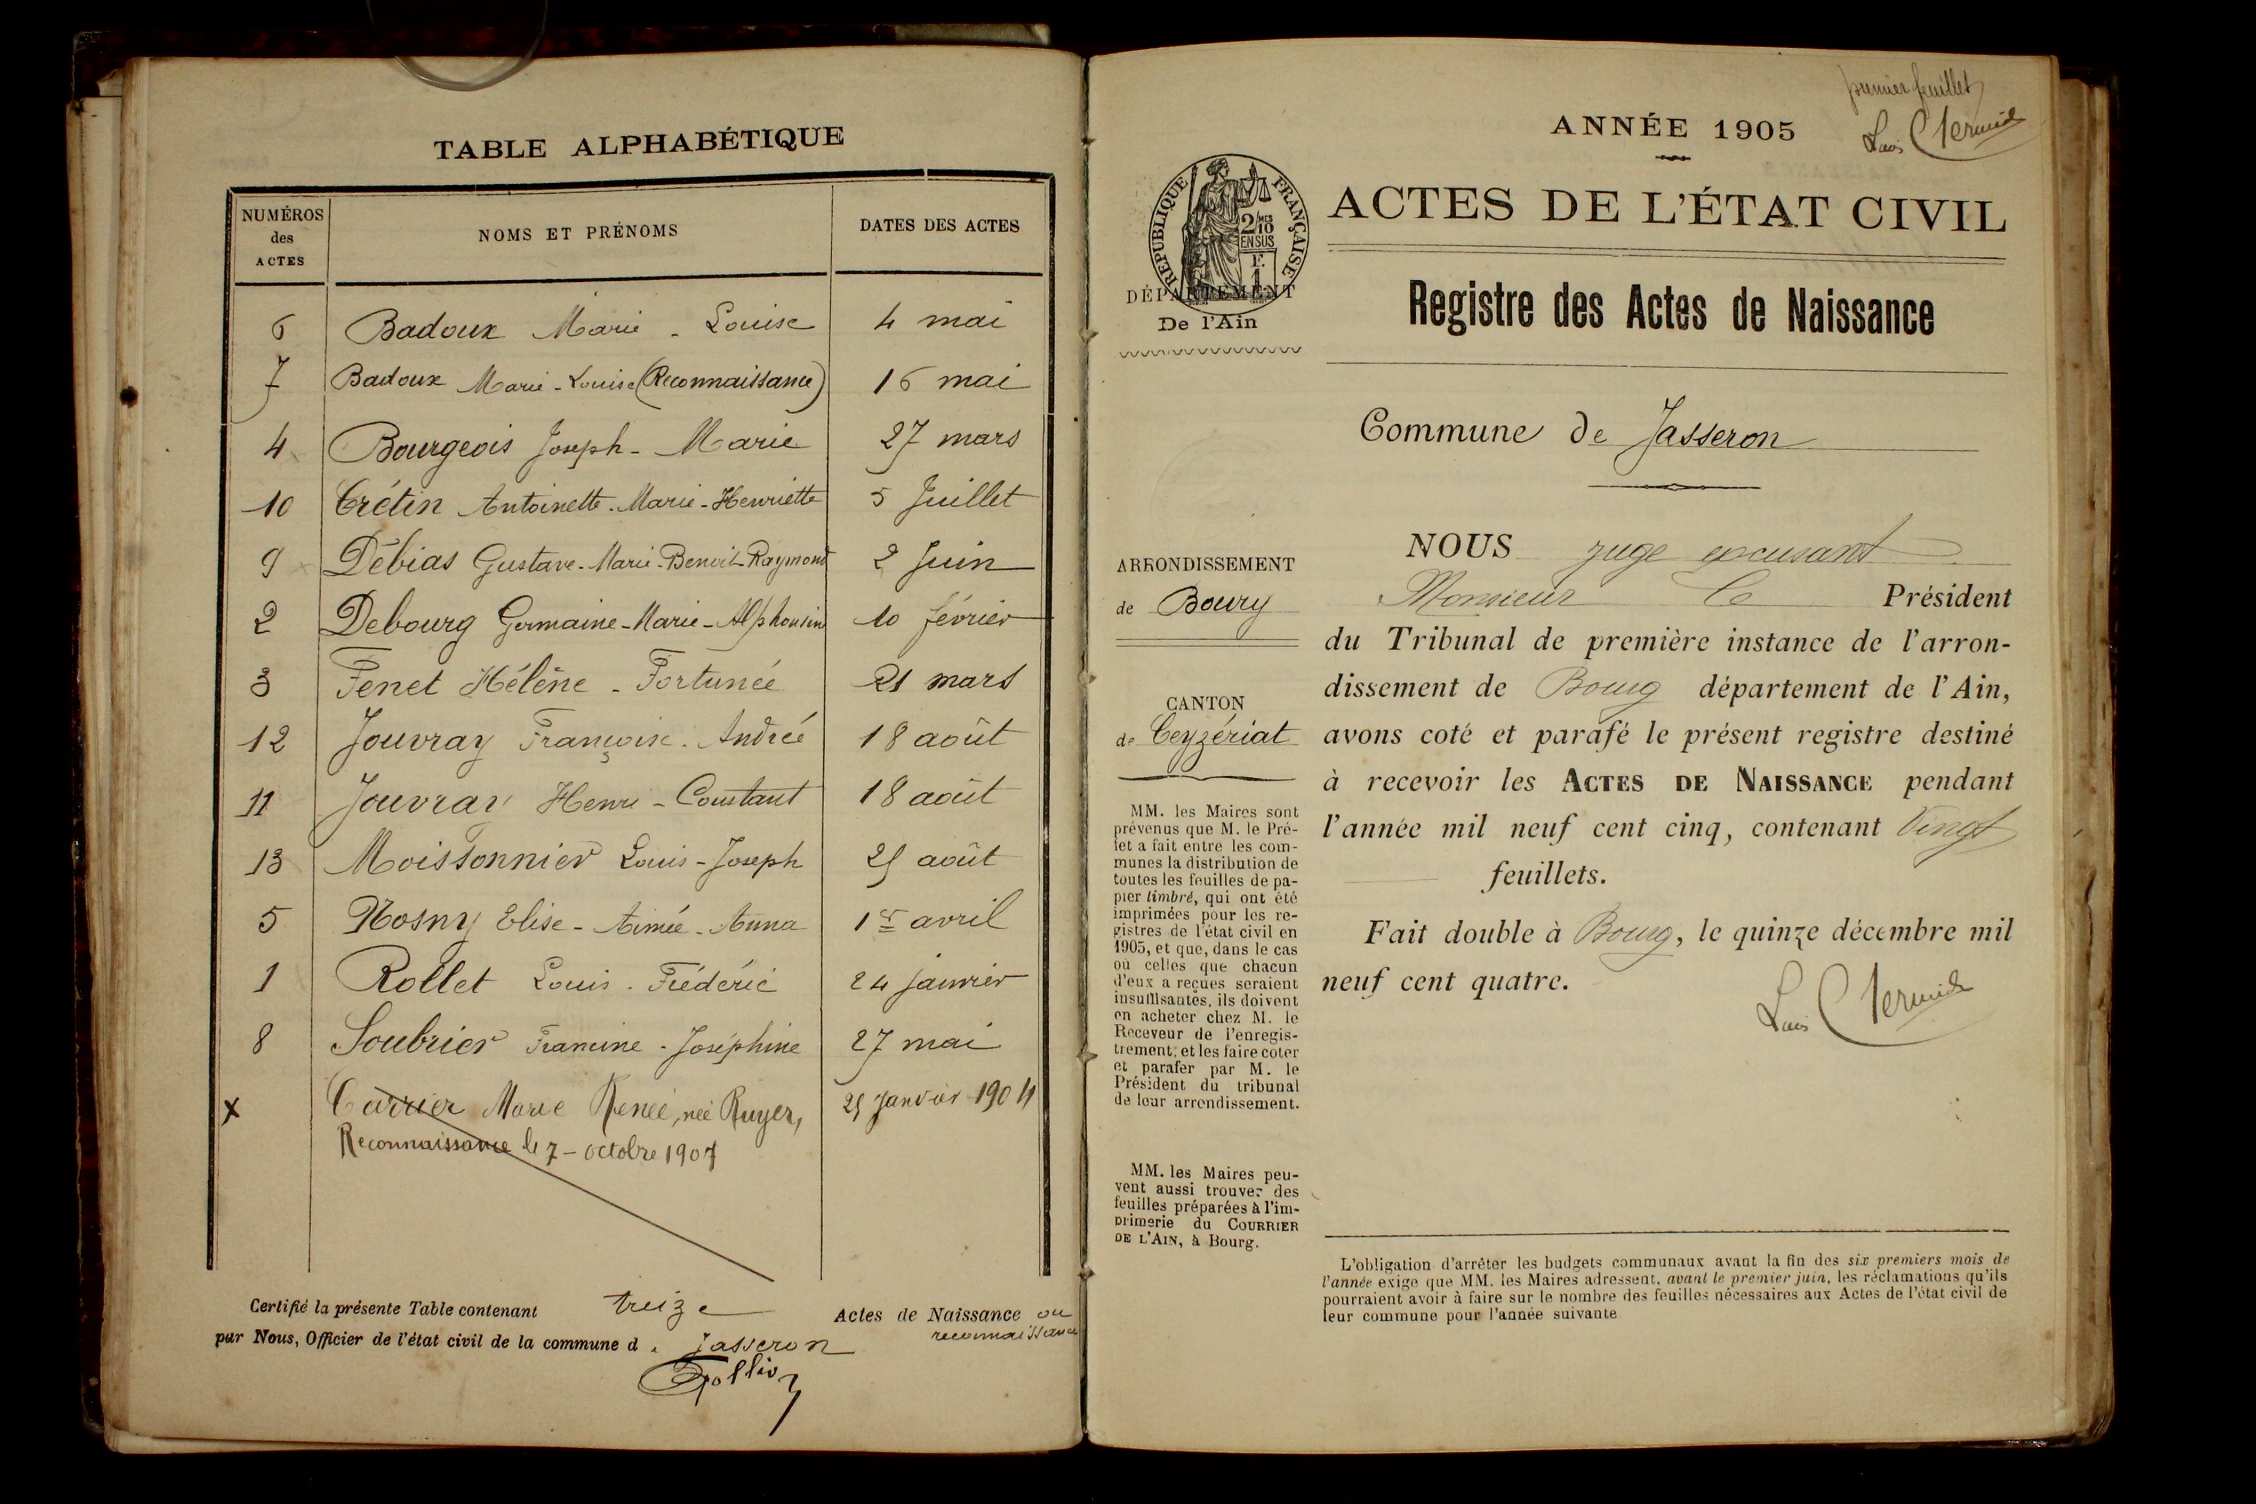 TABLE ALPHABÉTIQUE
NUMÉROS des ACTES
NOMS ET PRÉNOMS
DATES DES ACTES
6 Badoux Marie - Louise 4 mai
7 Badoux Marie-Louise (Reconnaissance) 16 mai
4 Bourgeois Joseph - Marie 27 mars
10 Crétin Antoinette-Marie-Henriette 5 Juillet
9 Débias Gustave-Marie-Benoit-Raymond 2 Juin
2 Debourg Germaine-Marie-Alphonsine 10 février
3 Fenet Hélène - Fortunée 21 mars
12 Jouvray Françoise - Andrée 18 août
11 Jouvray Henri - Constant 18 août
13 Moissonnier Louis - Joseph 25 août
5 Rosny Elise - Aimée - Anna 1er avril
1 Rollet Louis - Frédéric 24 janvier
8 Soubrier Francine - Joséphine 27 mai
x Carrier Marie Renée, née Ruyer, 25 Janvier 1904
Reconnaissance le 7 - octobre 1907
Certifié la présente Table contenant treize Actes de Naissance ou
reconnaissance
par Nous, Officier de l'état civil de la commune d. Jasseron
premier feuillet
Louis
ANNÉE 1905
RÉPUBLIQUE FRANÇAISE
2/10MES
EN SUS
F.
1
DÉPARTEMENT
De l'Ain
ACTES DE L'ÉTAT CIVIL
Registre des Actes de Naissance
Commune de Jasseron
ARRONDISSEMENT
de Bourg
CANTON
de Ceyzériat
MM. les Maires sont
prévenus que M. le Pré-
fet a fait entre les com-
munes la distribution de
toutes les feuilles de pa-
pier timbré, qui ont été
imprimées pour les re-
gistres de l'état civil en
1905, et que, dans le cas
où celles que chacun
d'eux a reçues seraient
insuffisantes, ils doivent
en acheter chez M. le
Receveur de l'enregis-
trement; et les faire coter
et parafer par M. le
Président du tribunal
de leur arrondissement.
MM. les Maires peu-
vent aussi trouver des
feuilles préparées à l'im-
primerie du COURRIER
DE L'AIN, à Bourg.
NOUS juge excusant
Monsieur le Président
du Tribunal de première instance de l'arron-
dissement de Bourg département de l'Ain,
avons coté et parafé le présent registre destiné
à recevoir les ACTES DE NAISSANCE pendant
l'année mil neuf cent cinq, contenant Vingt
feuillets.
Fait double à Bourg, le quinze décembre mil
neuf cent quatre.
Louis
L'obligation d'arrêter les budgets communaux avant la fin des six premiers mois de
l'année exige que MM. les Maires adressent, avant le premier juin, les réclamations qu'ils
pourraient avoir à faire sur le nombre des feuilles nécessaires aux Actes de l'état civil de
leur commune pour l'année suivante